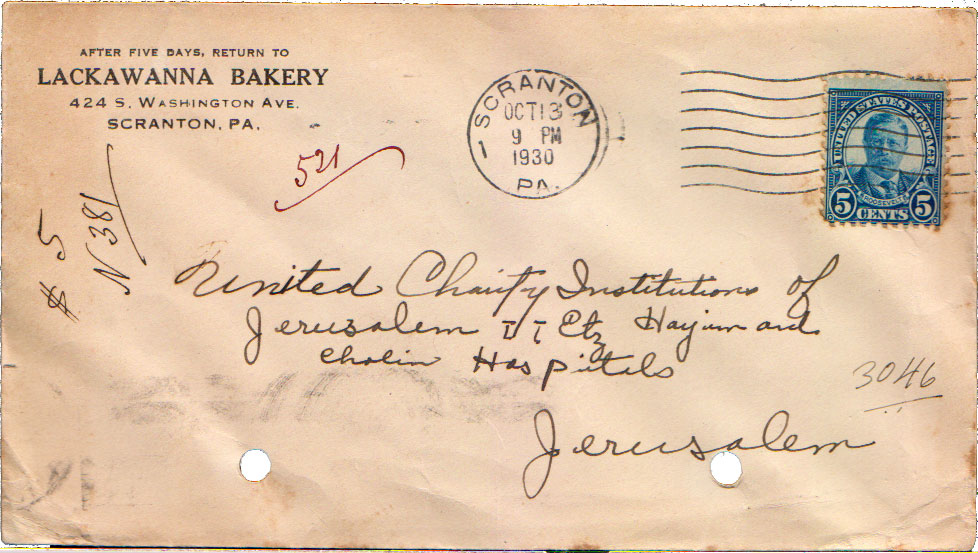 AFTER FIVE DAYS, RETURN TO
LACKAWANNA BAKERY
424 S. WASHINGTON AVE.
SCRANTON, PA.
SCRANTON
OCT 13
9 PM
1930
PA.
UNITED STATES POSTAGE
ROOSEVELT
5 CENTS 5
521
$5
N 381
United Charity Institutions of
Jerusalem Etz Hayim and
Cholin Hospitals
3046
Jerusalem